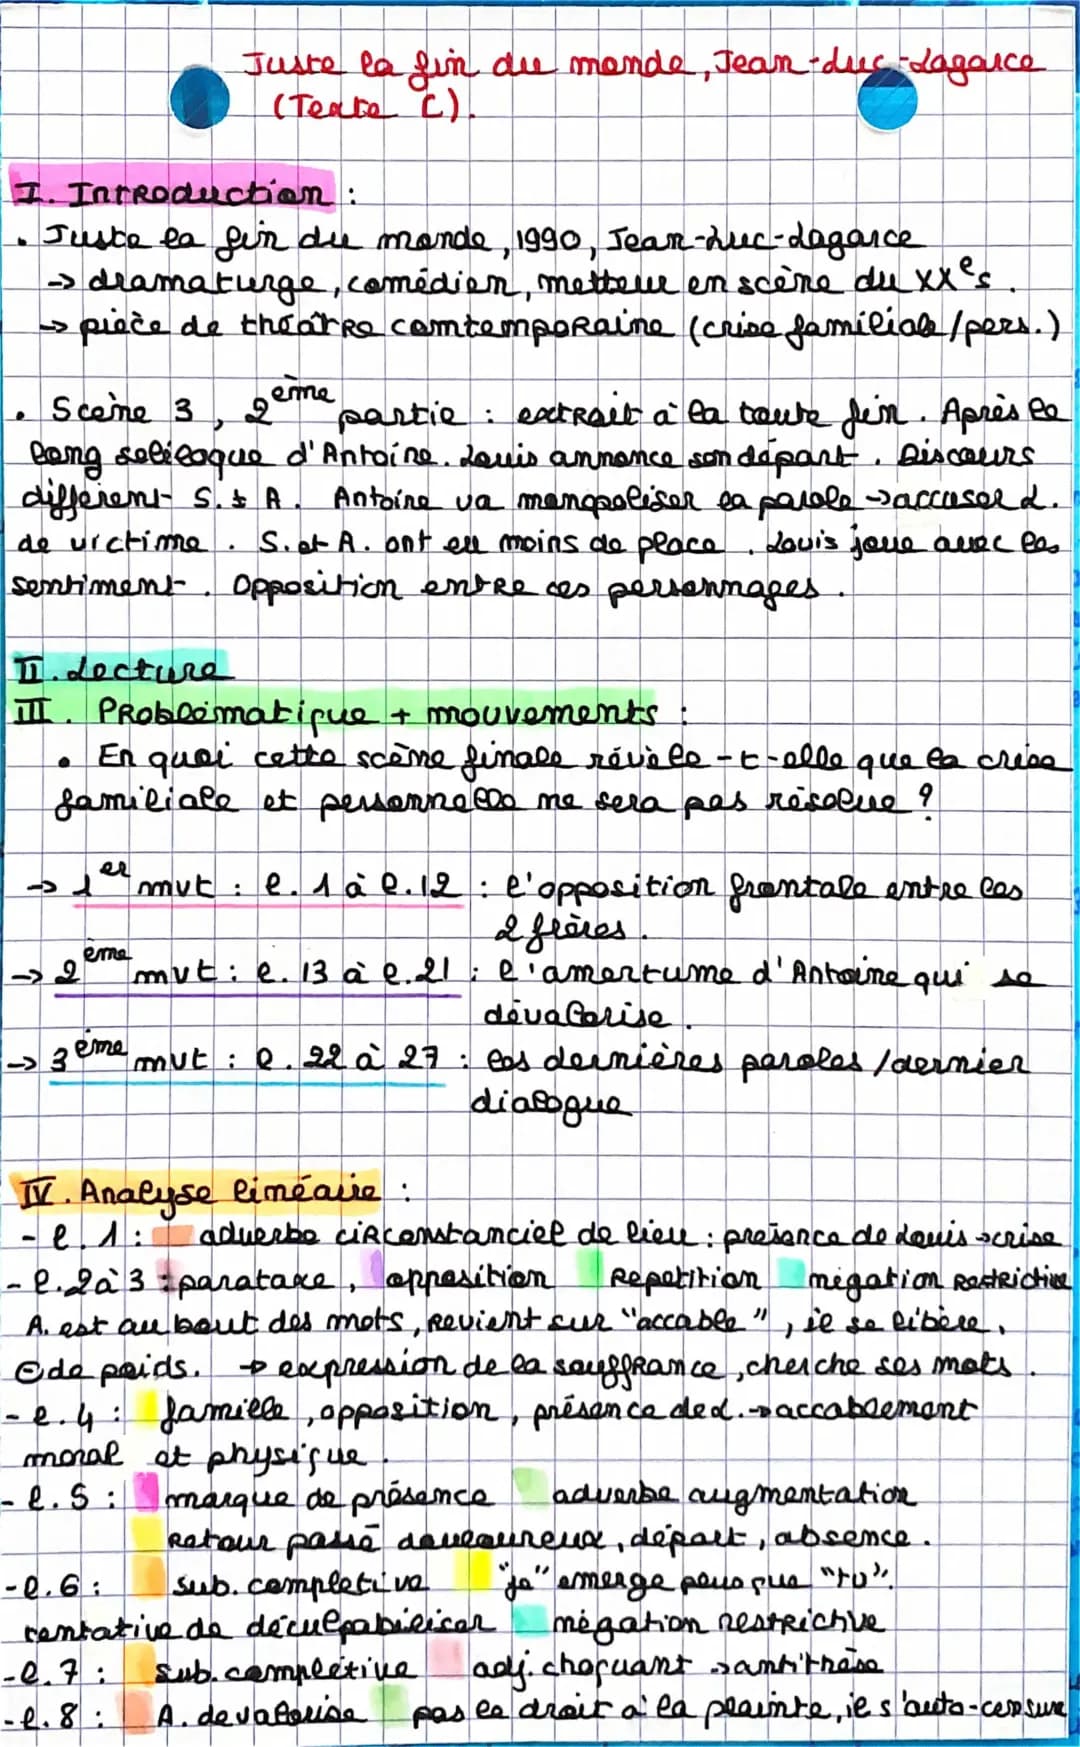 Juste la fin du monde, Jean-Luc-Lagarce
(Texte C).
I. Introduction :
• Juste la fin du monde, 1990, Jean-Luc-Lagarce
→ dramaturge, comédien, metteur en scène du XXes.
→ pièce de théâtre contemporaine (crise familiale/pers.)
• Scène 3, 2ème partie : extrait à la toute fin. Après le
long soliloque d'Antoine. Louis annonce son départ. Discours
différent S. & A. Antoine va monopoliser la parole → accuser L.
de victime. S. et A. ont eu moins de place. Louis joue avec les
sentiment. Opposition entre ces personnages.
II. Lecture
III. Problématique + mouvements :
• En quoi cette scène finale révèle-t-elle que la crise
familiale et personnelle ne sera pas résolue ?
→ 1er mvt : l. 1 à l. 12 : l'opposition frontale entre les
2 frères.
→ 2ème mvt : l. 13 à l. 21 : l'amertume d'Antoine qui se
dévalorise.
→ 3ème mvt : l. 22 à 27 : les dernières paroles / dernier
dialogue
IV. Analyse linéaire :
- l. 1 : adverbe circonstanciel de lieu : présence de Louis → crise
- l. 2 à 3 : parataxe, opposition Repetition négation Restrictive
A. est au bout des mots, revient sur "accable", il se libère,
⊖ de poids. → expression de la souffrance, cherche ses mots.
- l. 4 : famille, opposition, présence de L. → accablement
moral et physique.
- l. 5 : marque de présence adverbe augmentation
Retour passé douloureux, départ, absence.
- l. 6 : sub. completive "je" emerge plus que "tu".
tentative de déculpabiliser négation restrictive
- l. 7 : sub. complétive adj. choquant → antithèse
- l. 8 : A. devalorise pas le droit à la plainte, il s'auto-censure